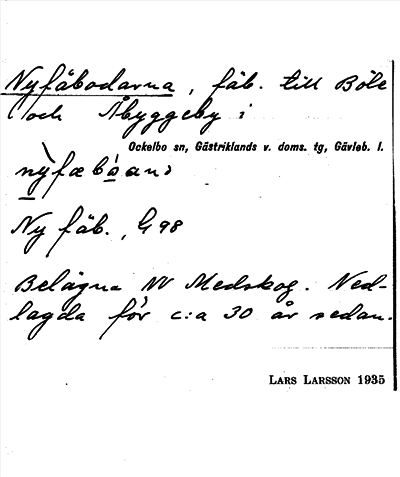 Nyfäbodarna, fäb. till Böle
och Åbyggeby i
Ockelbo sn, Gästriklands v. doms. tg, Gävleb. l.
Ny fäb., G98
Belägna NV Medskog. Ned-
lagda för c:a 30 år sedan.
LARS LARSSON 1935